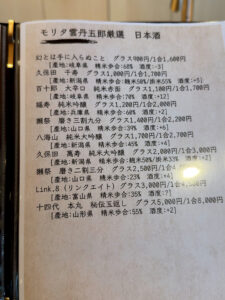 モリタ雲丹五郎厳選 日本酒
幻とは手に入らぬこと グラス900円/1合1,600円
[産地:岐阜県 精米歩合:68% 酒度:-3]
久保田 千寿 グラス1,000円/1合1,700円
[産地:新潟県 精米歩合:麹米50%/掛米55% 酒度:+5]
百十郎 大辛口 純米吟醸 グラス1,100円/1合1,700円
[産地:岐阜県 精米歩合:70% 酒度:+12]
福寿 純米吟醸 グラス1,200円/1合2,000円
[産地:兵庫県 精米歩合:60% 酒度:+2]
獺祭 磨き三割九分 グラス1,400円/1合2,200円
[産地:山口県 精米歩合:39% 酒度:
八海山 純米大吟醸 グラス1,400円/1合2,200円
[産地:新潟県 精米歩合:45% 酒度:+4]
久保田 萬寿 純米大吟醸 グラス2,000円/1合3,000円
[産地:新潟県 精米歩合:麹米50%/掛米33% 酒度:+2]
獺祭 磨き二割三分 グラス2,500円/1合4,
[産地:山口県 精米歩合:23% 酒度:+4]
Link.8 (リンクエイト) グラス3,000円/1合4,
[産地:富山県 精米歩合:35% 酒度:
十四代 本丸 秘伝玉返し グラス5,000円/1合8,000円
[産地:山形県 精米歩合:55% 酒度:+2]